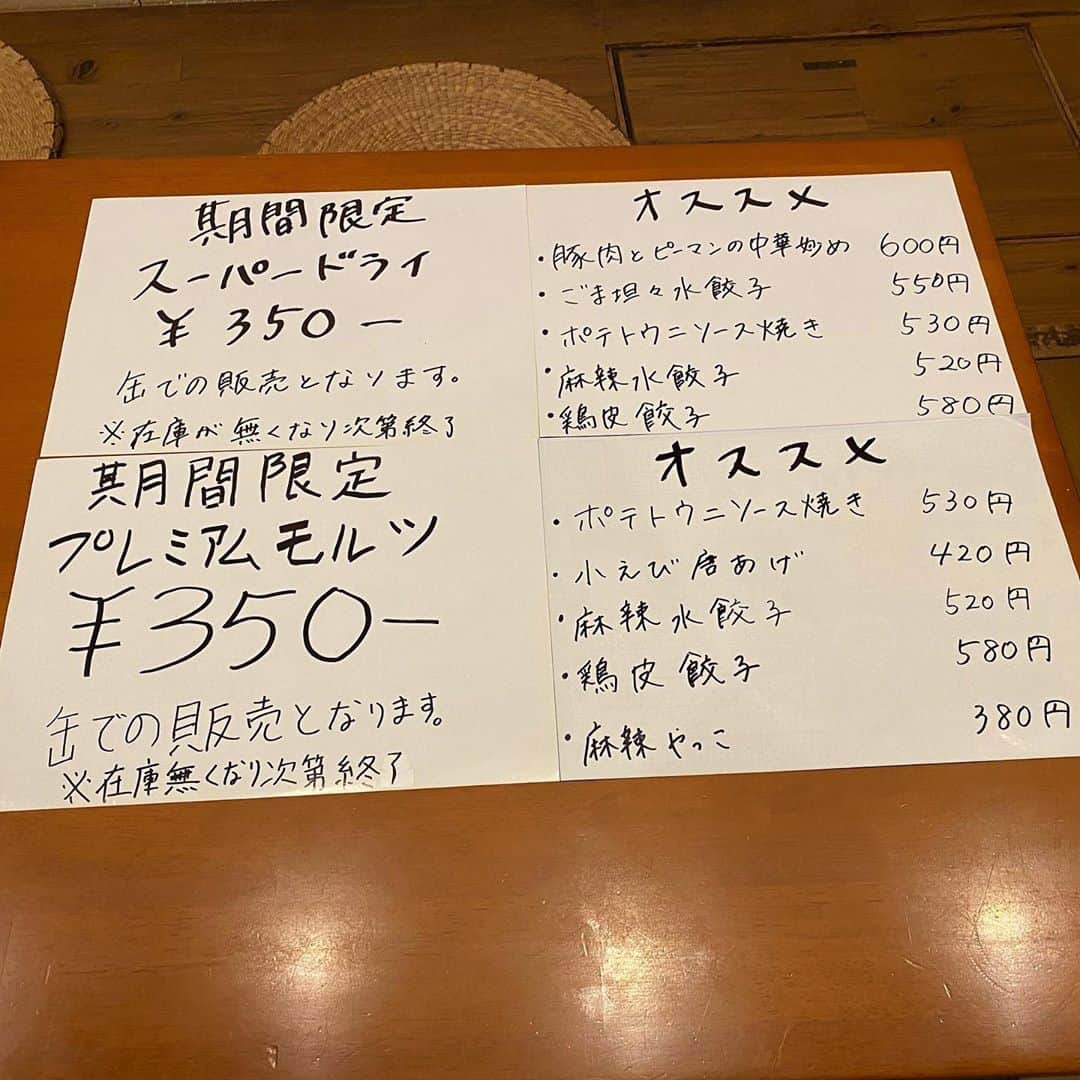 期間限定
スーパードライ
¥350-
缶での販売となります。
※在庫が無くなり次第終了
オススメ
・豚肉とピーマンの中華炒め 600円
・ごま坦々水餃子 550円
・ポテトウニソース焼き 530円
・麻辣水餃子 520円
・鶏皮餃子 580円
期間限定
プレミアムモルツ
¥350-
缶での販売となります。
※在庫無くなり次第終了
オススメ
・ポテトウニソース焼き 530円
・小えび唐あげ 420円
・麻辣水餃子 520円
・鶏皮餃子 580円
・麻辣やっこ 380円